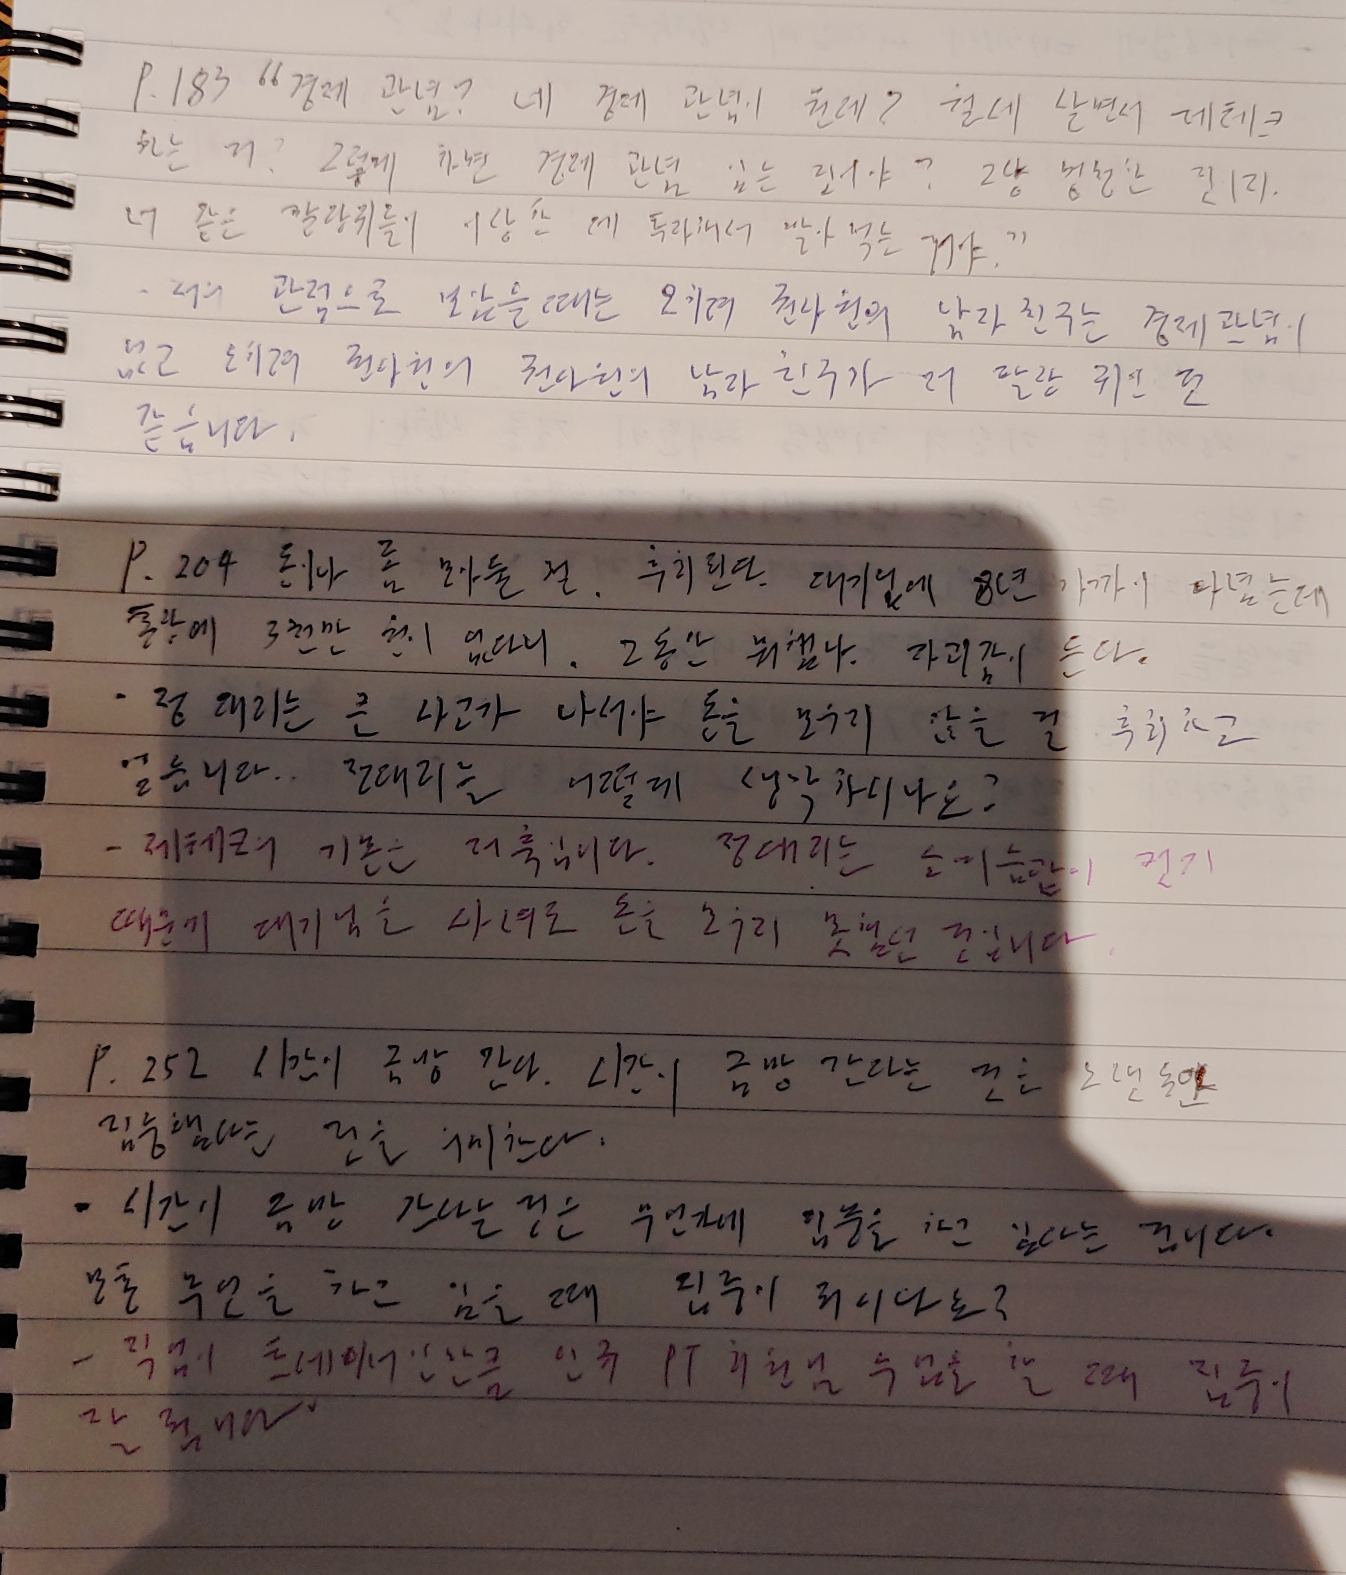 P.183 "경제 관념? 네 경제 관념이 뭔데? 월세 살면서 재테크
하는 거? 그렇게 하면 경제 관념 있는 거야? 그냥 멍청한 짓이지.
너 같은 팔랑귀들이 이상한 데 투자해서 말아 먹는 거야."
- 저의 관점으로 보았을때는 오히려 권사원의 남자친구는 경제관념이
없고 오히려 권사원의 권사원의 남자친구가 더 팔랑 귀인 것
같습니다.
P. 204 돈이나 좀 모아둘 걸. 후회된다. 대기업에 8년 가까이 다녔는데
통장에 3천만 원이 없다니. 그동안 뭐했나. 자괴감이 든다.
· 정 대리는 큰 사고가 나서야 돈을 모우지 않을 걸 후회하고
있습니다.. 정대리는 어떻게 생각하시나요?
- 제테크의 기본은 저축입니다. 정대리는 소비습관이 크기
때문에 대기업을 다녀도 돈을 모우지 못했던 것입니다.
P. 252 시간이 금방 간다. 시간이 금방 간다는 것은 그만큼
집중했다는 것을 의미한다.
· 시간이 금방 간다는것은 무언가에 집중을 하고 있다는 겁니다.
보통 무언을 하고 있을 때 집중이 되시나요?
- 직업이 트레이너인만큼 인규 PT 회원님 수업을 할 때 집중이
잘 됩니다.